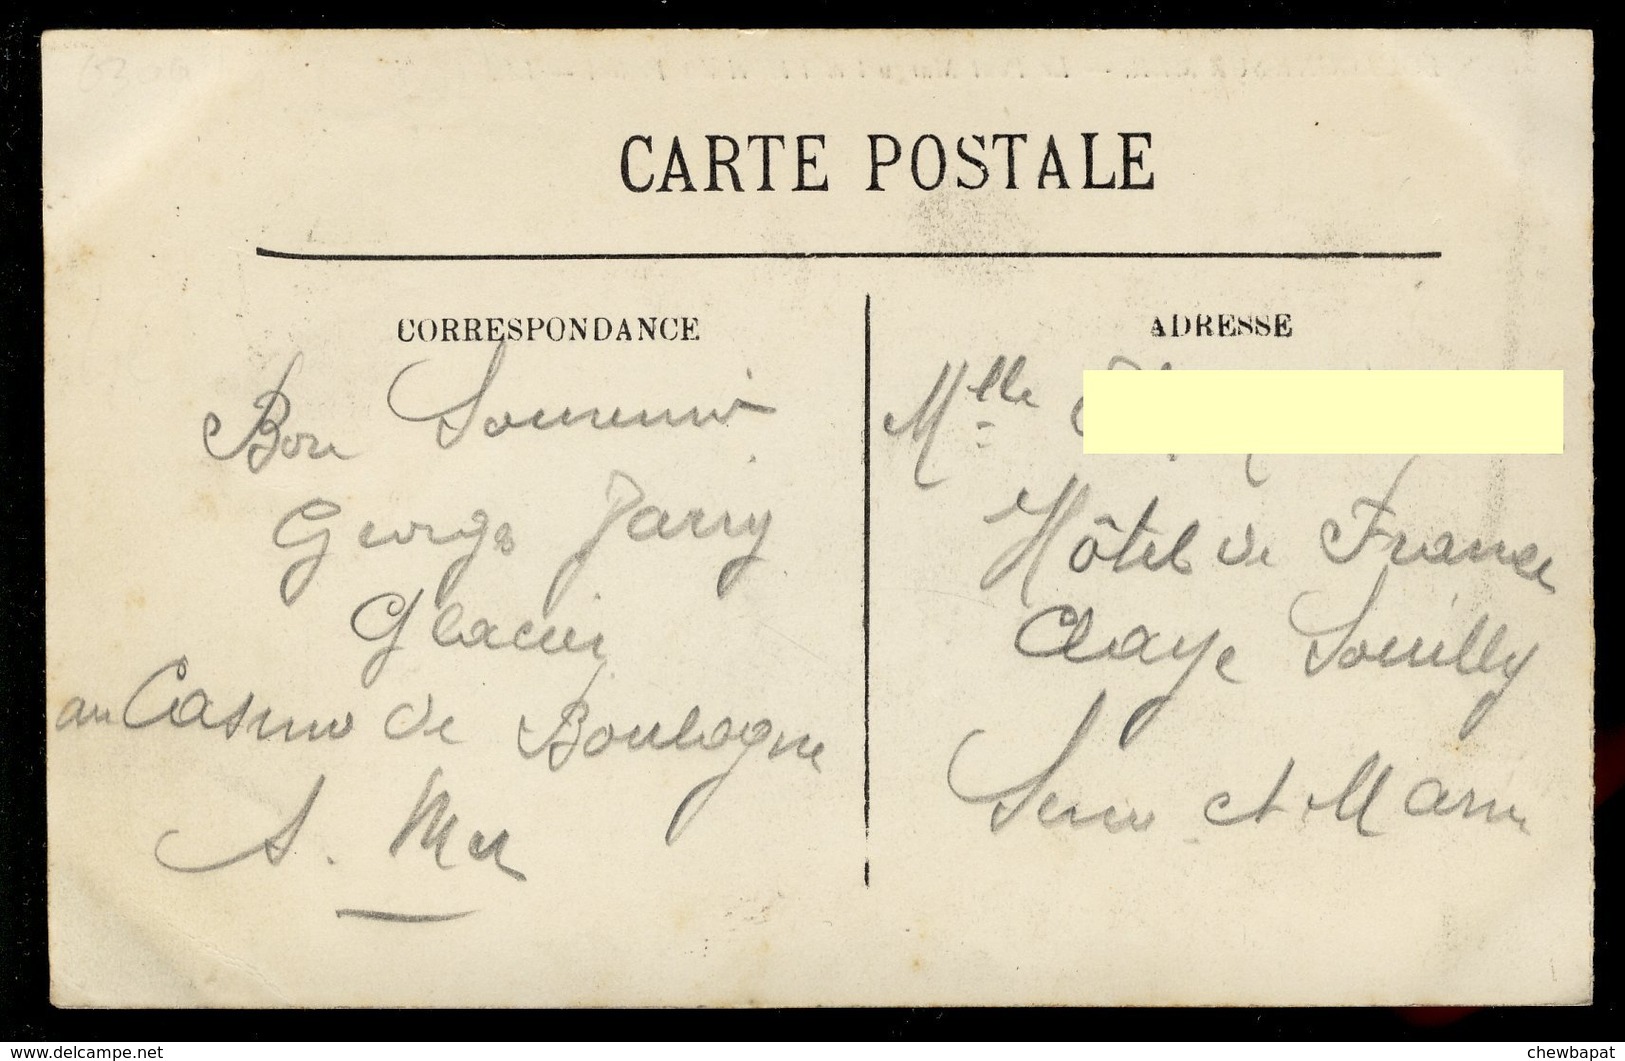 CARTE POSTALE
CORRESPONDANCE
Bon Souvenir
Georges Jarry
Glacier
au Casino de Boulogne
S. Mer
ADRESSE
Mlle
Hôtel de France
Claye Souilly
Seine et Marne
www.delcampe.net
chewbapat